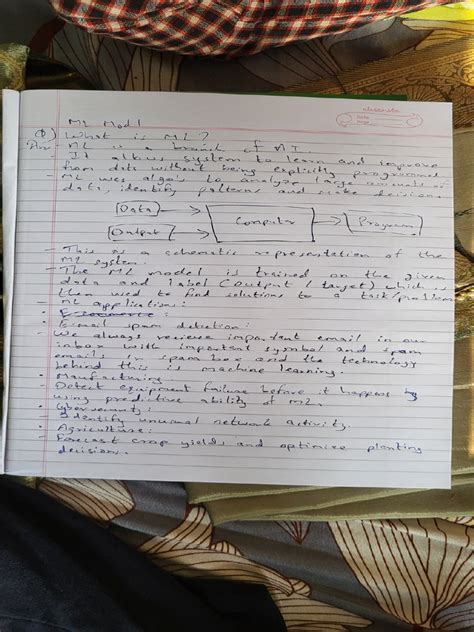 classmate
Date
Page
ML Model
Q) What is ML?
Ans - ML is a branch of AI.
- It allows system to learn and improve
from data without being explicitly programmed
- ML uses algo's to analyze large amounts of
data, identify patterns and make decision.
Data
Output
Computer
Program
- This is a schematic representation of the
ML system.
- The ML model is trained on the given
data and label (output / target) which is
then used to find solutions to a task/problem
- ML applications:
• E-commerce:
• E-mail spam detection:
- We always recieve important email in our
inbox with important symbol and spam
emails in spam box and the technology
behind this is machine learning.
• Manufacturing
- Detect equipment failure before it happens by
using predictive ability of ML.
• Cybersecurity:
- Identify unusual network activity.
• Agriculture:
- Forecast crop yields and optimize planting
decisions.